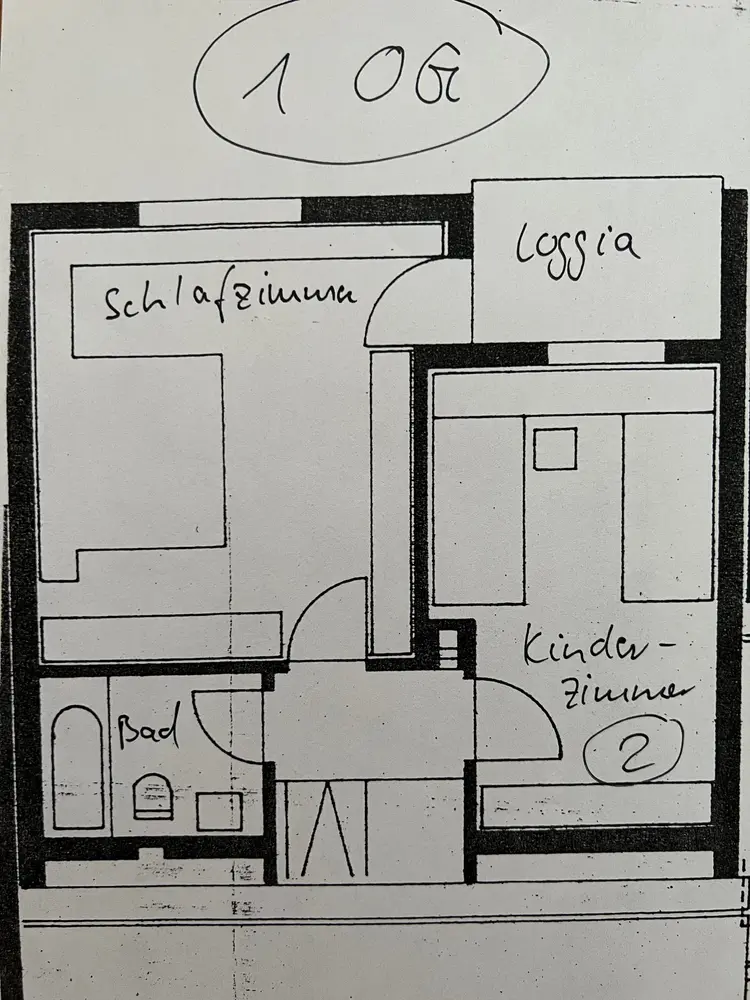 1 OG
Loggia
Schlafzimmer
Kinder-
zimmer
2
Bad